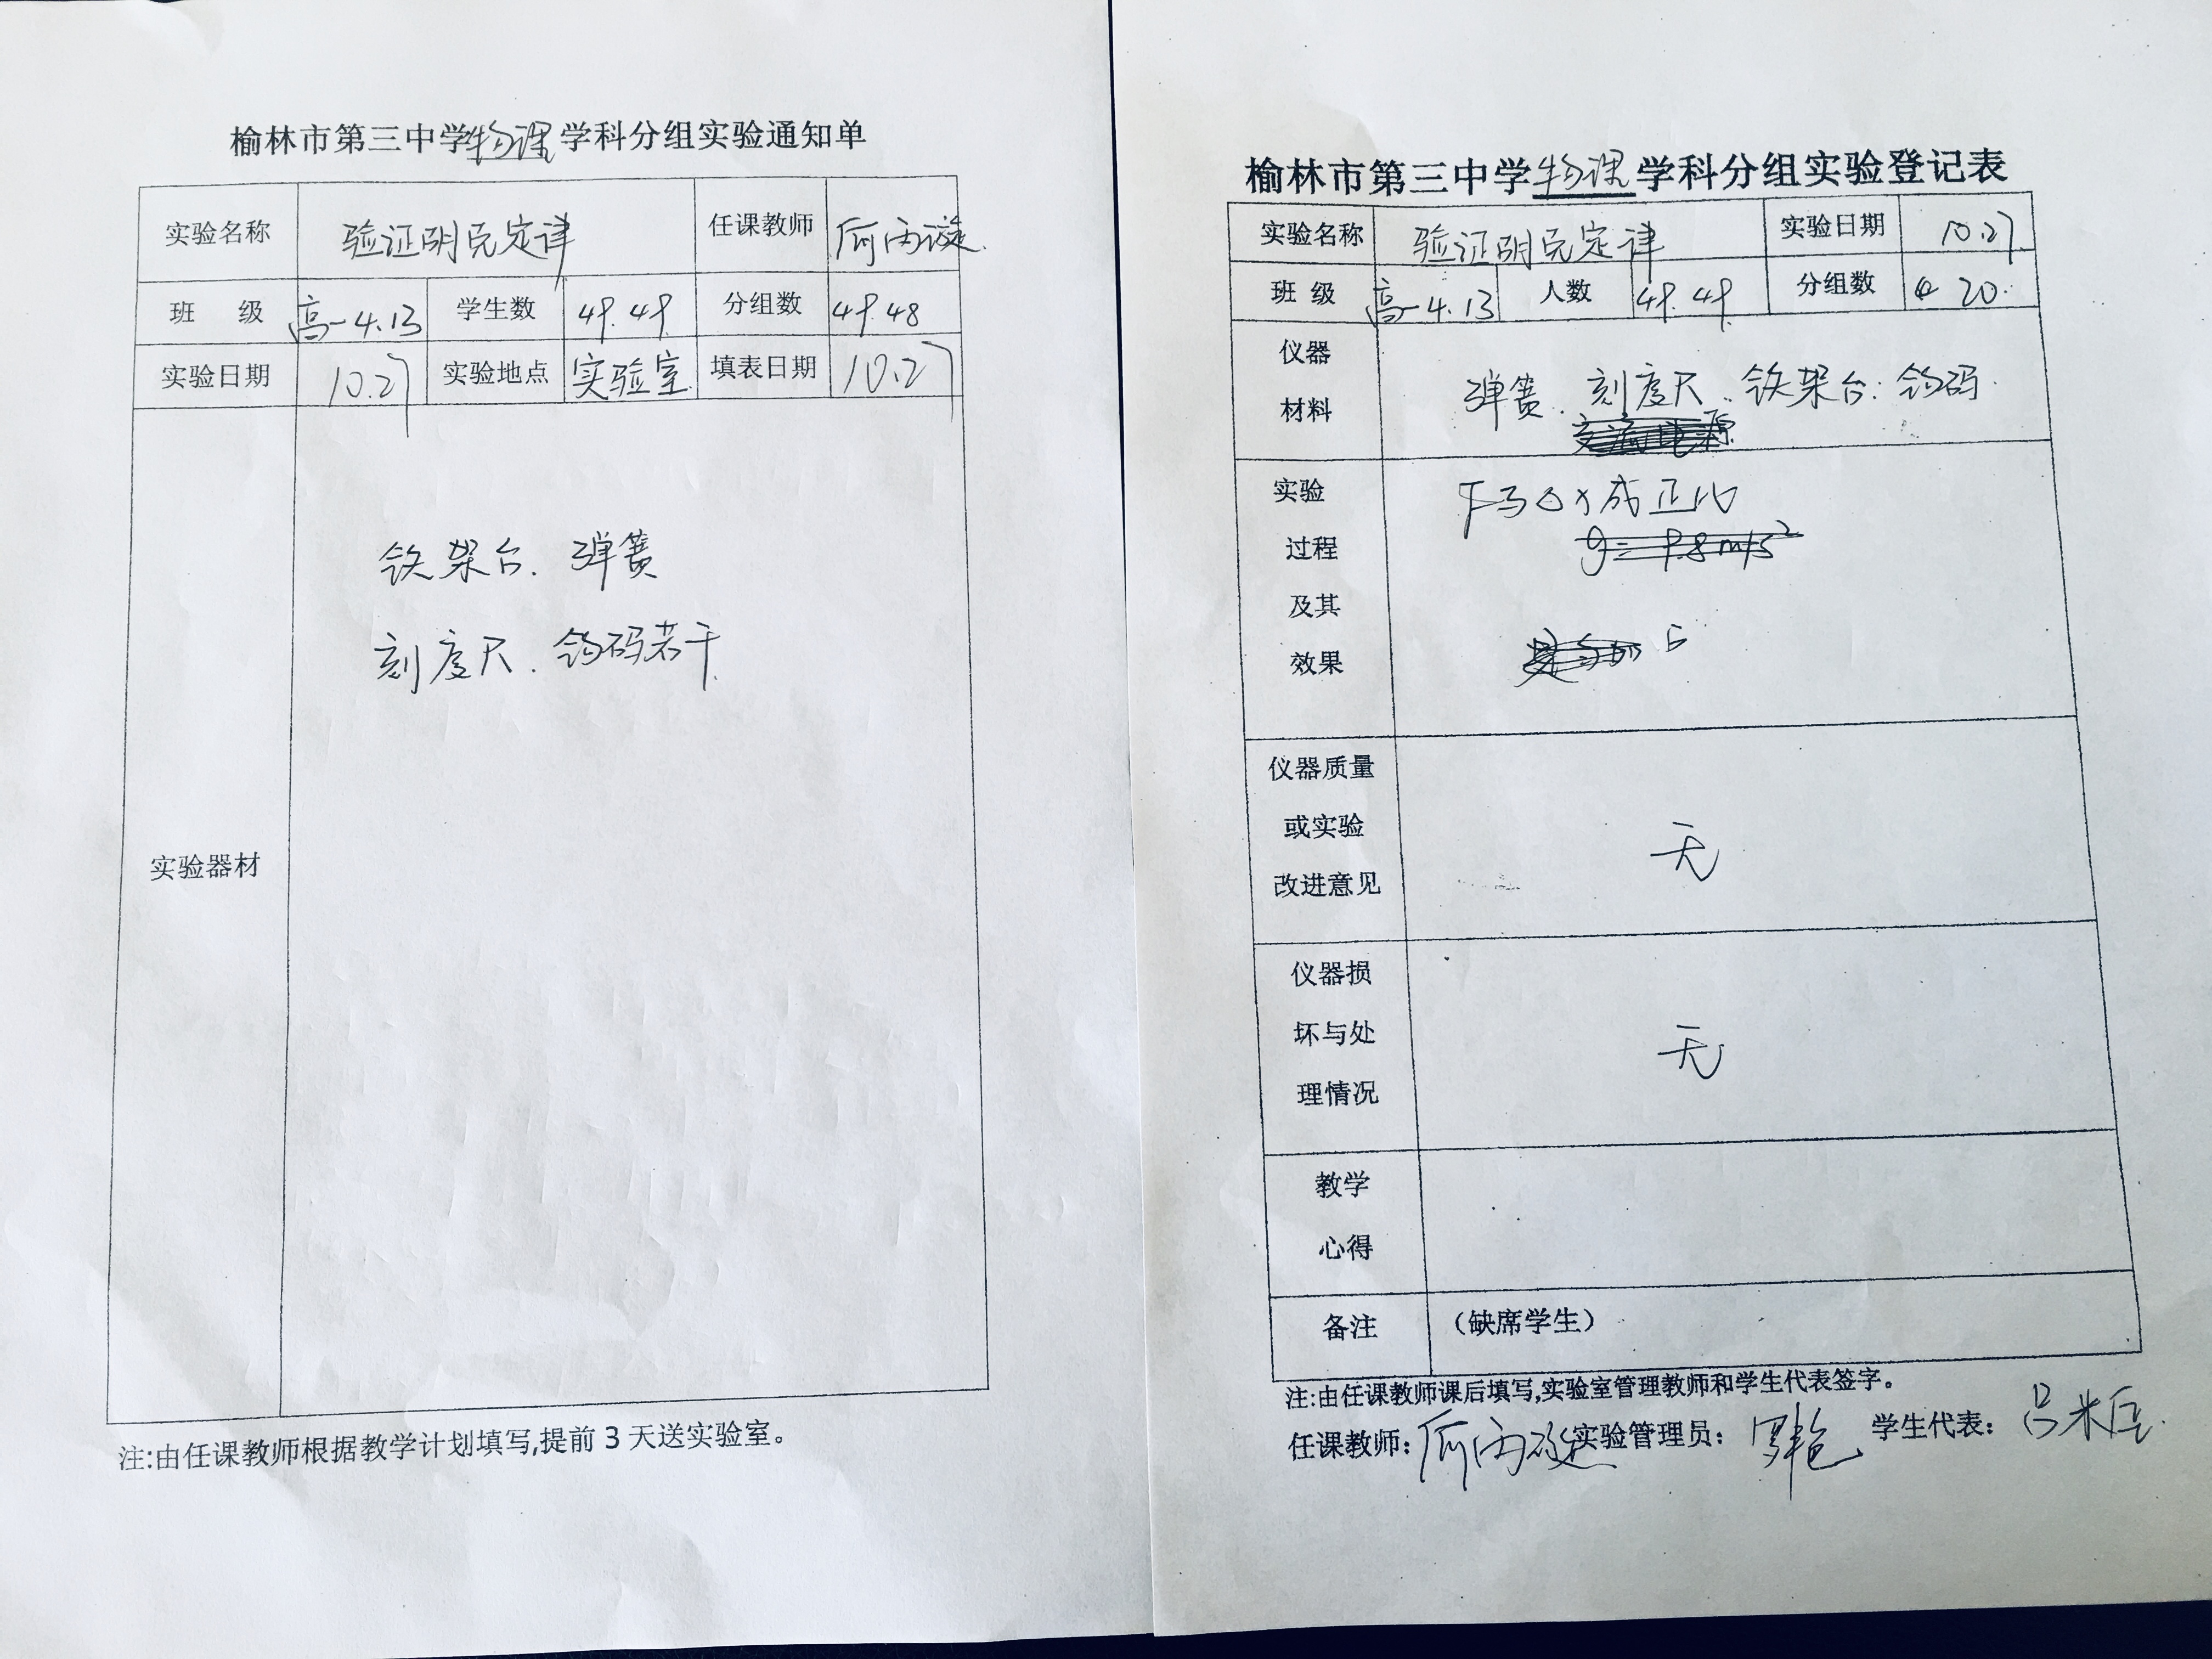 榆林市第三中学物理学科分组实验通知单
实验名称 验证胡克定律 任课教师
班 级 高一4.13 学生数 49.49 分组数 49.48
实验日期 10.27 实验地点 实验室 填表日期 10.27
实验器材
铁架台. 弹簧
刻度尺. 钩码若干
注:由任课教师根据教学计划填写,提前 3 天送实验室。
榆林市第三中学物理学科分组实验登记表
实验名称 验证胡克定律 实验日期 10.27
班 级 高一4.13 人数 49.49 分组数 20
仪器
材料
弹簧. 刻度尺. 铁架台. 钩码.
交流电源
实验
过程
及其
效果
F与△x成正比
g=9.8m/s²
仪器质量
或实验
改进意见
无
仪器损
坏与处
理情况
无
教学
心得
备注 （缺席学生）
注:由任课教师课后填写,实验室管理教师和学生代表签字。
任课教师: 实验管理员: 学生代表: 吕